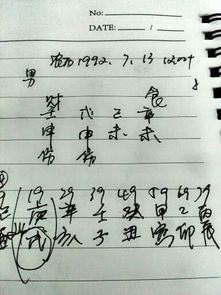 No:
DATE: / /
1992. 7. 13 12.00时
男
财 食
壬 戊 己 辛
申 申 未 未
伤 伤
19 29 39 49 59 69 79
庚 辛 壬 癸 甲 乙 丙
戌 亥 子 丑 寅 卯 辰